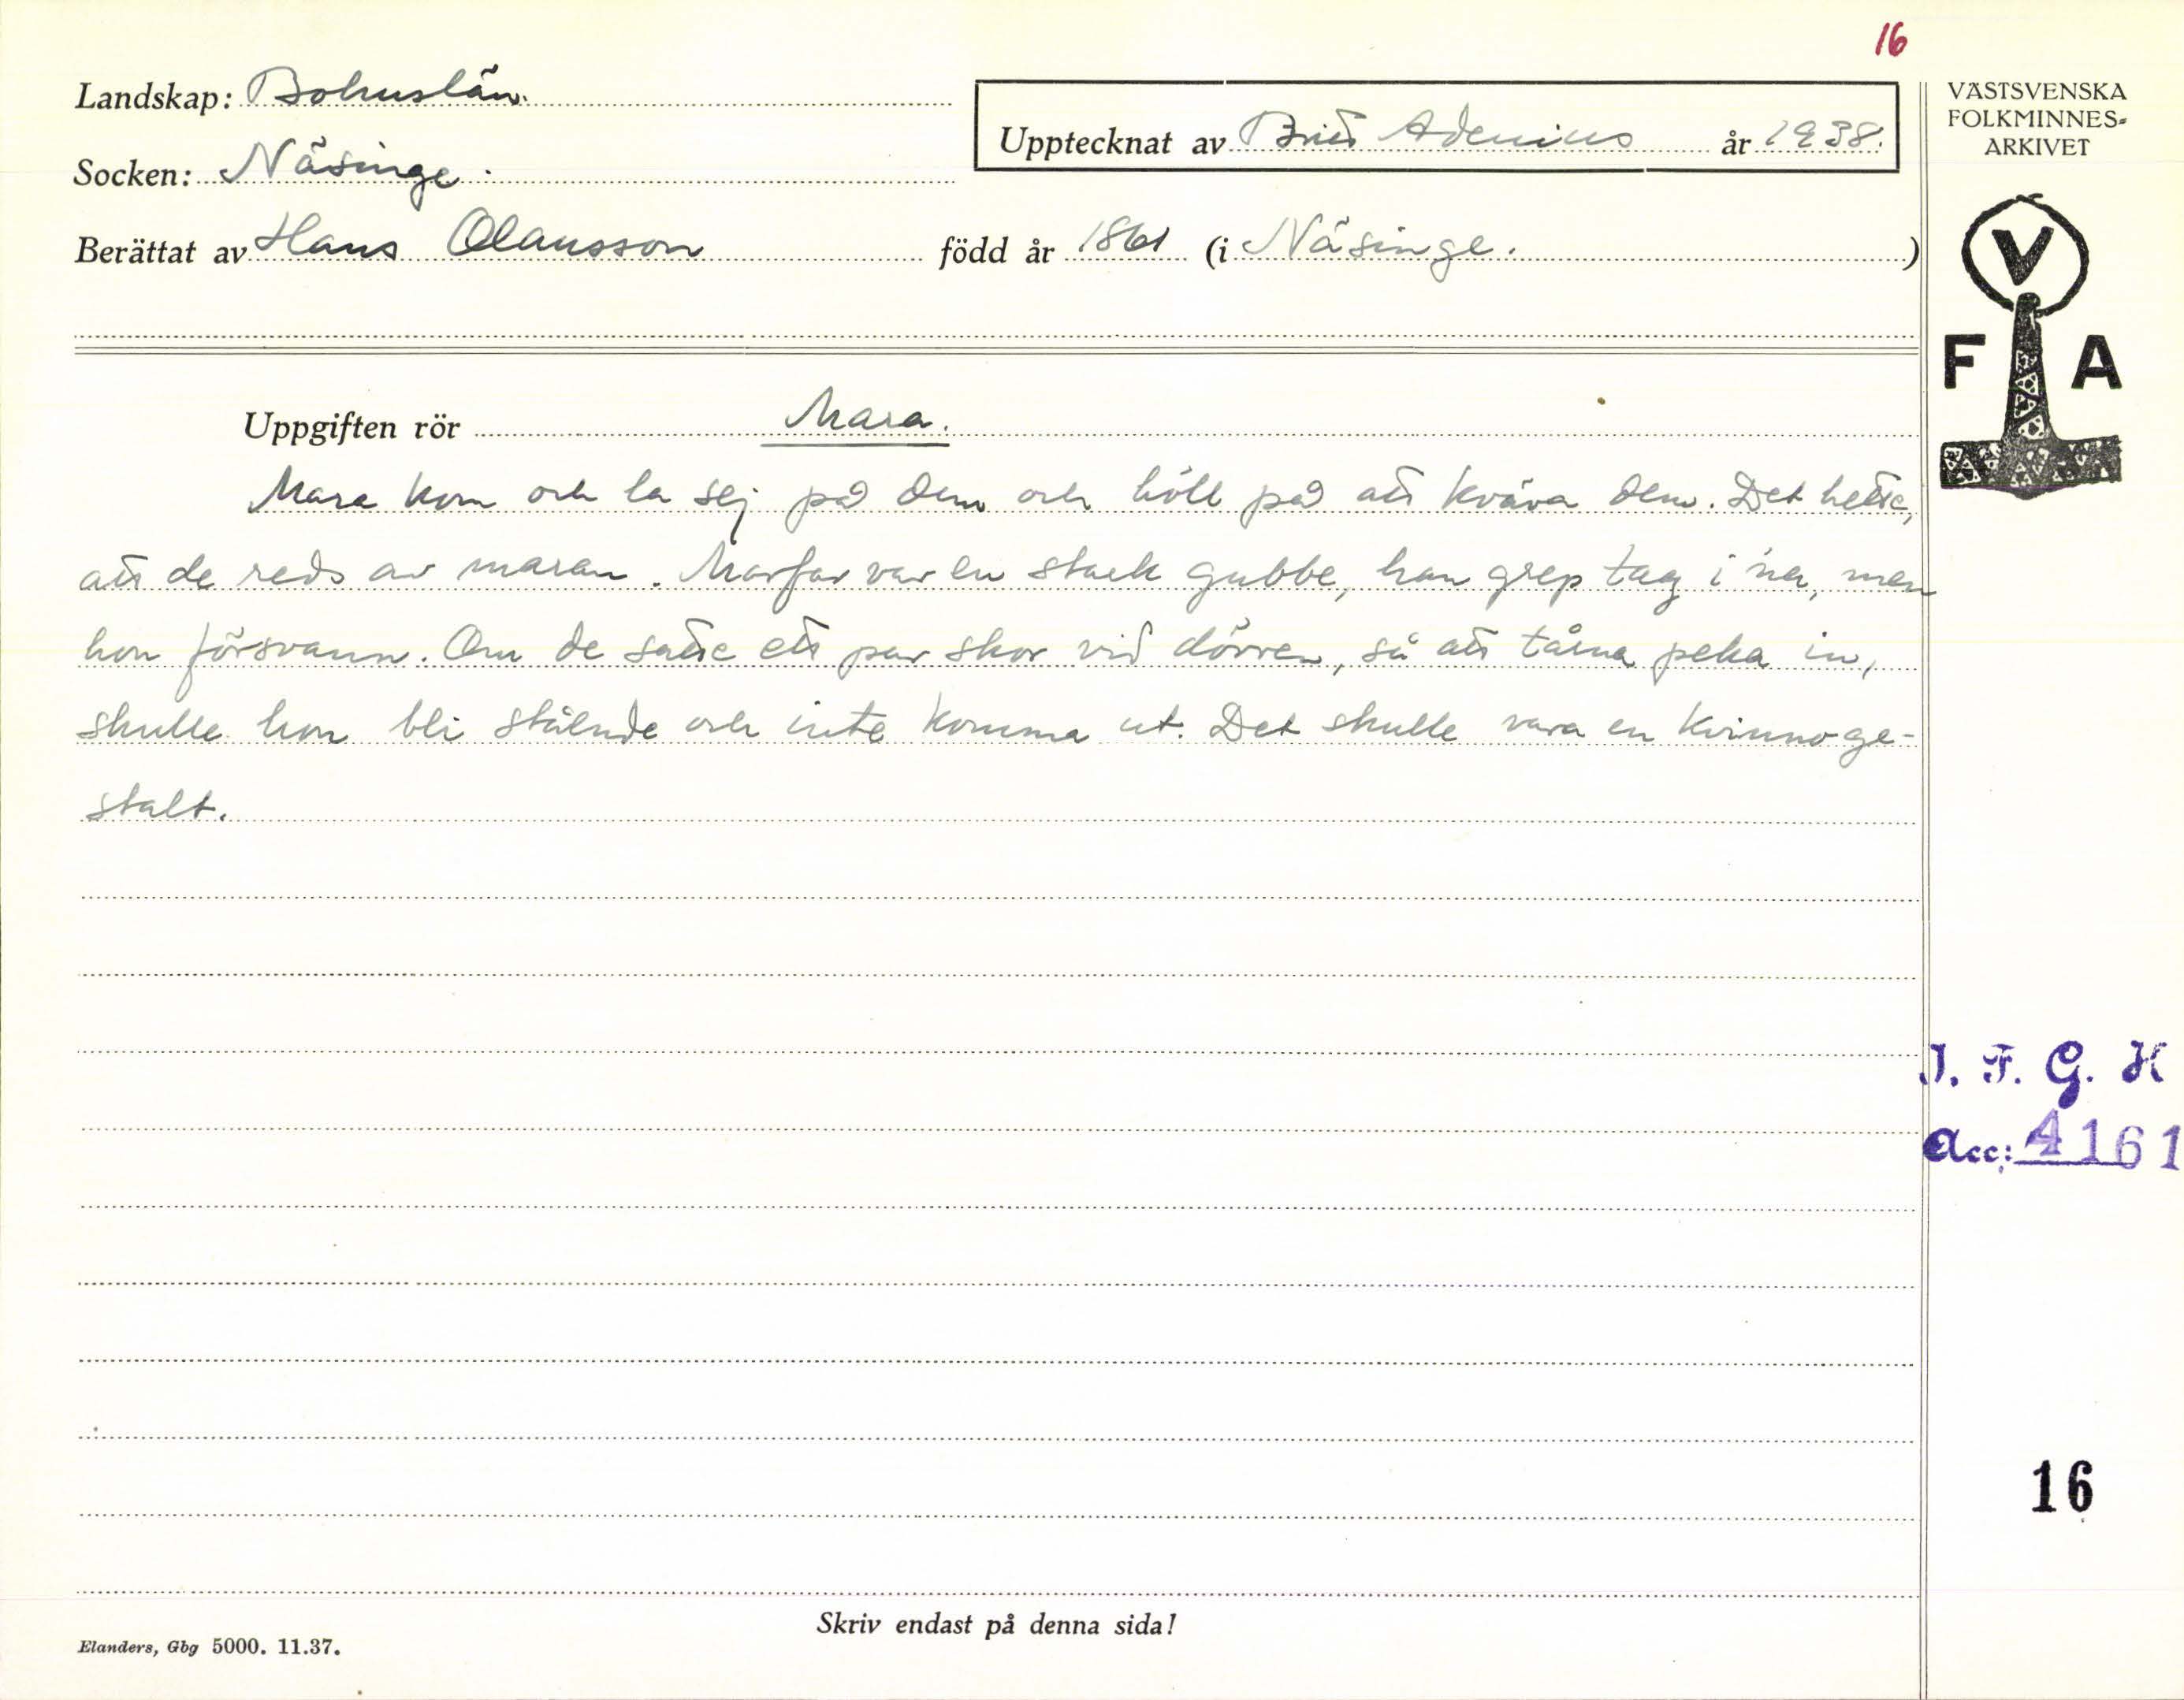 16
Landskap: Bohuslän.
Upptecknat av Britt Adenius år 1938.
Socken: Näsinge.
Berättat av Hans Olausson född år 1861 (i Näsinge. )
VÄSTSVENSKA
FOLKMINNES-
ARKIVET
V
F A
Uppgiften rör Mara.
Mara kom och la sej på dem och höll på att kväva dem. Det hette,
att de reds av maran. Morfar var en stark gubbe, han grep tag i 'na, men
hon försvann. Om de satte ett par skor vid dörren, så att tårna peka in,
skulle hon bli stående och inte komma ut. Det skulle vara en kvinnoge-
stalt.
I. F. G. H
Acc: 4161
16
Skriv endast på denna sida!
Elanders, Gbg 5000. 11.37.